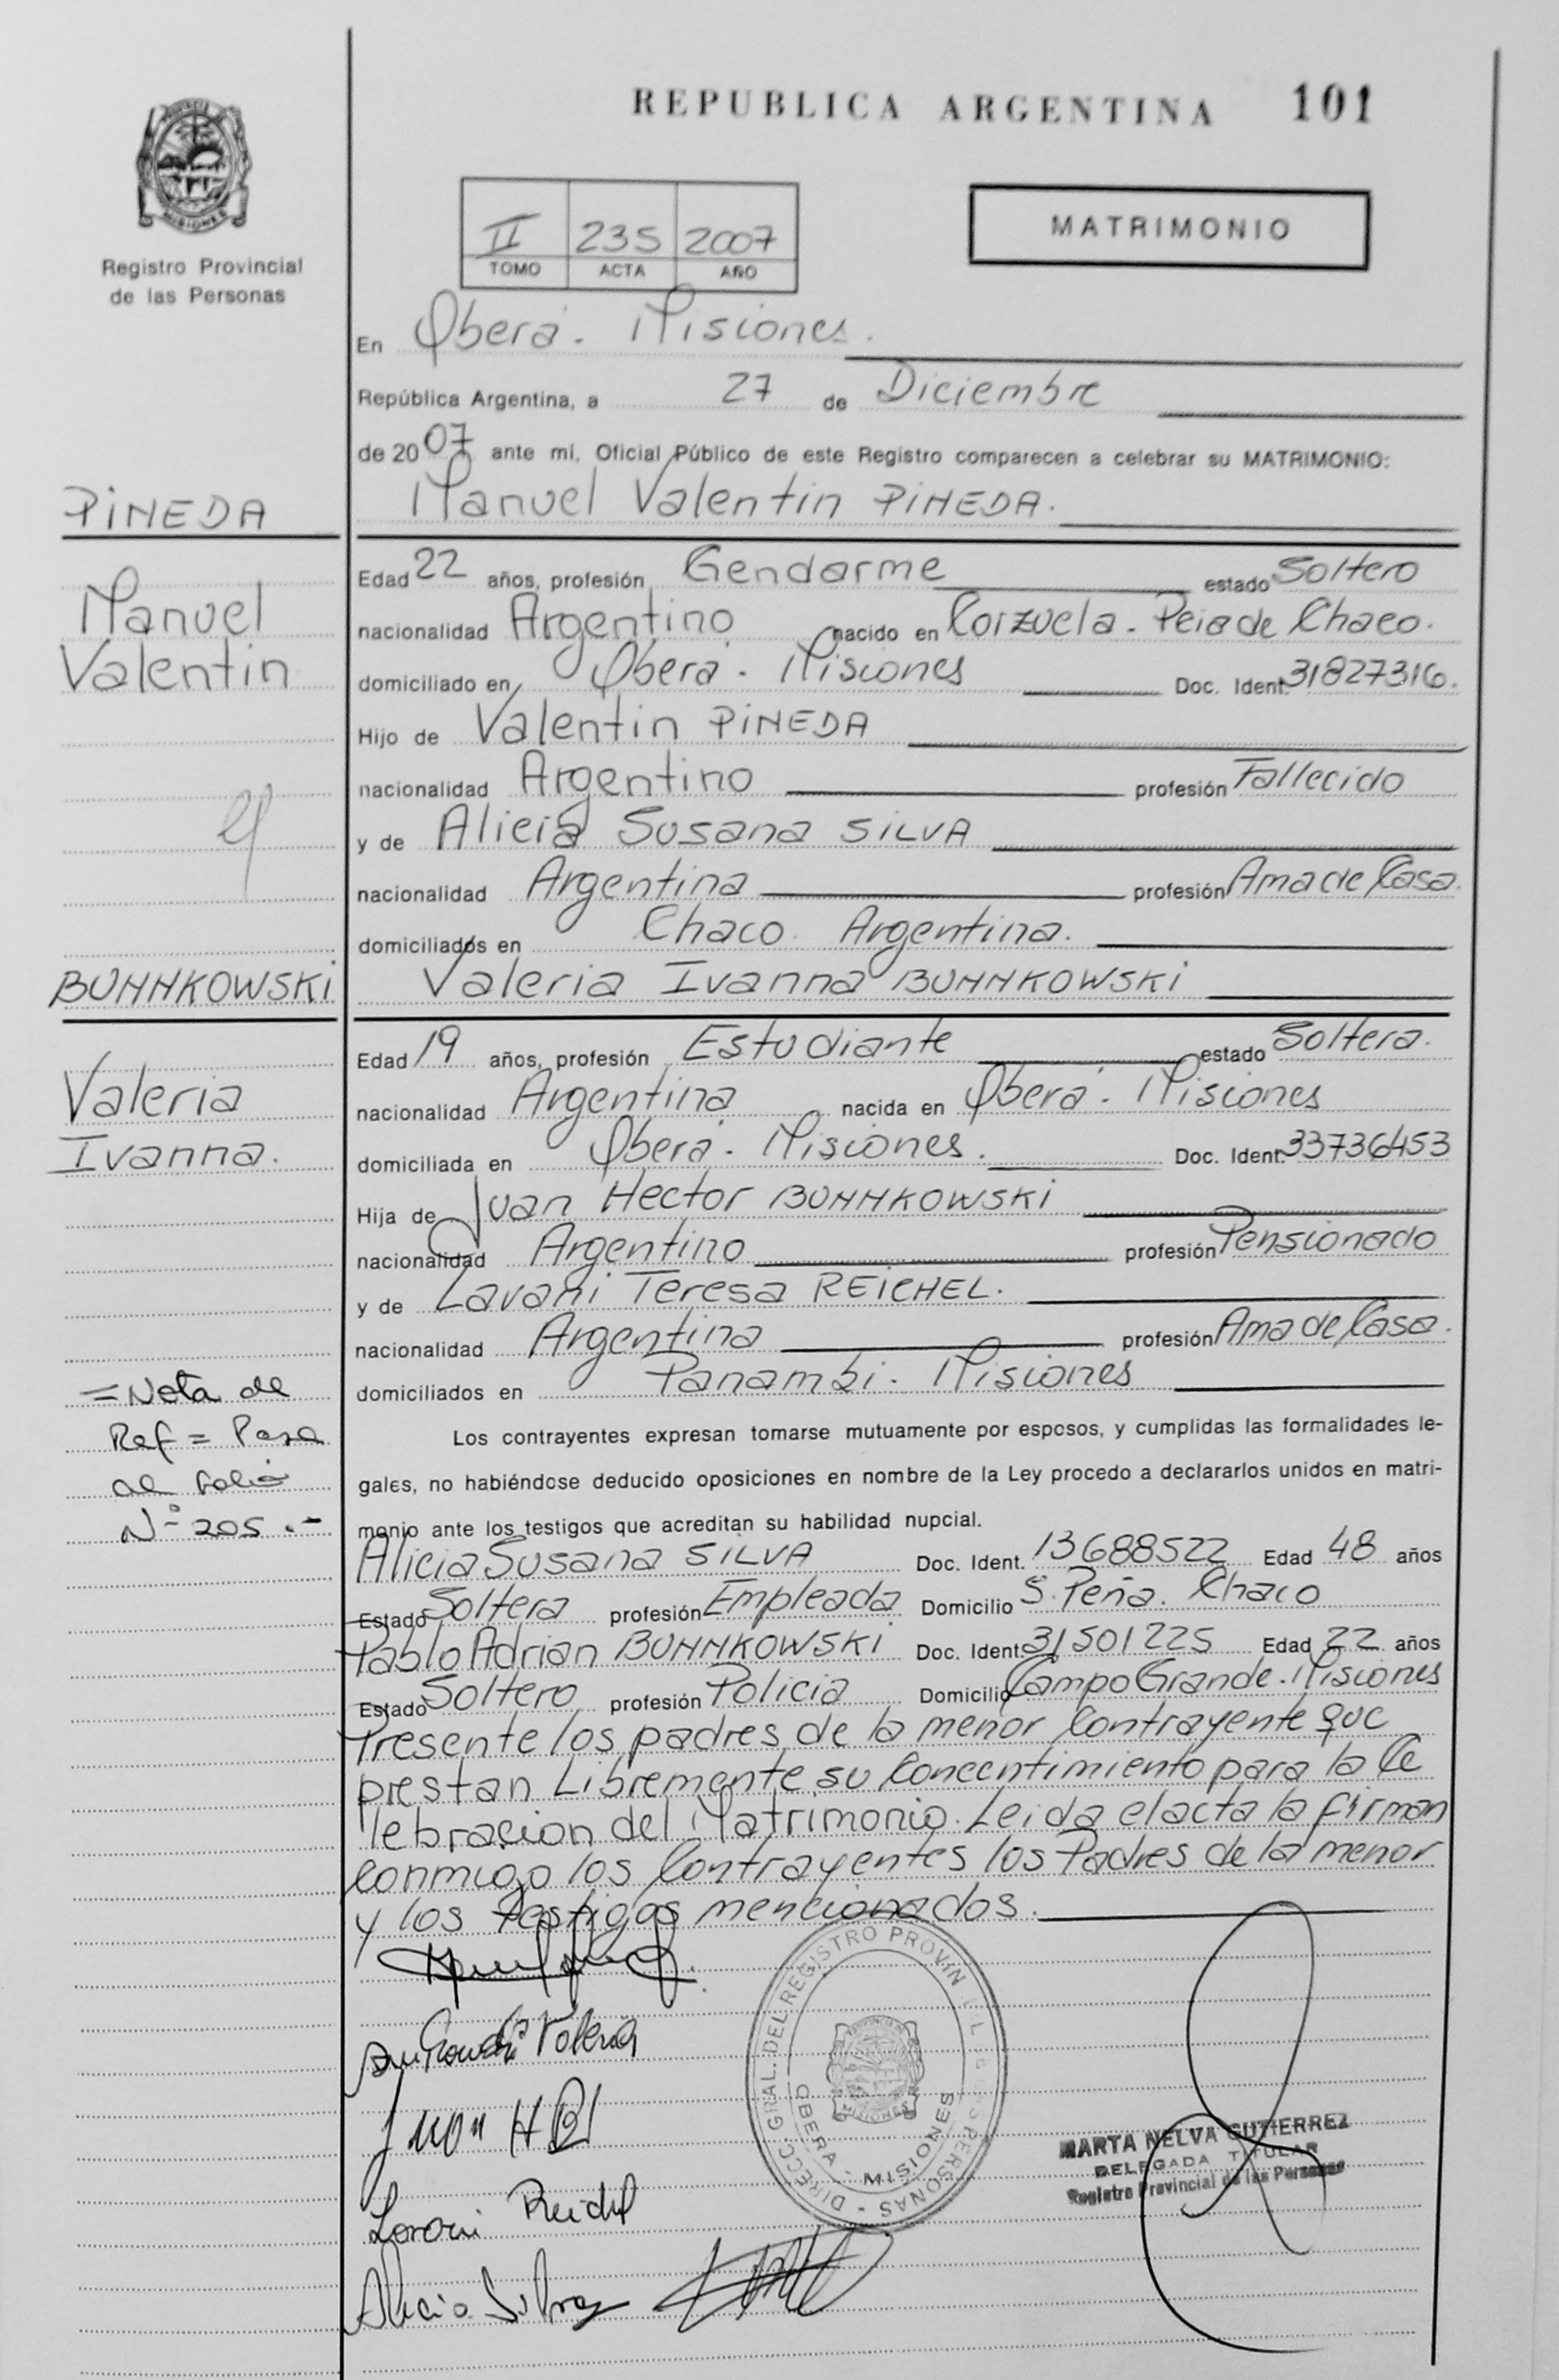 REPUBLICA ARGENTINA 101
MISIONES
Registro Provincial
de las Personas
II 235 2007
TOMO ACTA AÑO
MATRIMONIO
En Oberá - Misiones.
República Argentina, a 27 de Diciembre
de 2007 ante mí, Oficial Público de este Registro comparecen a celebrar su MATRIMONIO:
PINEDA
Manuel Valentin PINEDA.
Edad 22 años, profesión Gendarme estado Soltero
Manuel
nacionalidad Argentino nacido en Corzuela - Pcia de Chaco.
Valentin
domiciliado en Oberá - Misiones Doc. Ident. 31827316.
Hijo de Valentin PINEDA
nacionalidad Argentino profesión Fallecido
y
y de Alicia Susana SILVA
nacionalidad Argentina profesión Ama de Casa.
domiciliados en Chaco Argentina.
BUHNKOWSKI
Valeria Ivanna BUHNKOWSKI
Edad 19 años, profesión Estudiante estado Soltera.
Valeria
nacionalidad Argentina nacida en Oberá - Misiones
Ivanna.
domiciliada en Oberá - Misiones. Doc. Ident. 33736453
Hija de Juan Hector BUHNKOWSKI
nacionalidad Argentino profesión Pensionado
y de Lavani Teresa REICHEL.
nacionalidad Argentina profesión Ama de Casa.
= Nota de
domiciliados en Panambi - Misiones
Ref = Pasa
Los contrayentes expresan tomarse mutuamente por esposos, y cumplidas las formalidades le-
al folio
gales, no habiéndose deducido oposiciones en nombre de la Ley procedo a declararlos unidos en matri-
N° 205.-
monio ante los testigos que acreditan su habilidad nupcial.
Alicia Susana SILVA Doc. Ident. 13688522 Edad 48 años
Estado Soltera profesión Empleada Domicilio S. Peña. Chaco
Pablo Adrian BUHNKOWSKI Doc. Ident. 31501225 Edad 22 años
Estado Soltero profesión Policia Domicilio Campo Grande - Misiones
Presente los padres de la menor Contrayente que
prestan Libremente su Concentimiento para la Ce
lebracion del Matrimonio. Leida el acta la firman
Conmigo los Contrayentes los Padres de la menor
y los testigos mencionados.
Valeria
Juan H B
Lavani Reichel
Alicia Silva
DIRECC. GRAL. DEL REGISTRO PROVINCIAL DE LAS PERSONAS
OBERA - MISIONES
MARTA NELVA GUTIERREZ
DELEGADA TITULAR
Registro Provincial de las Personas